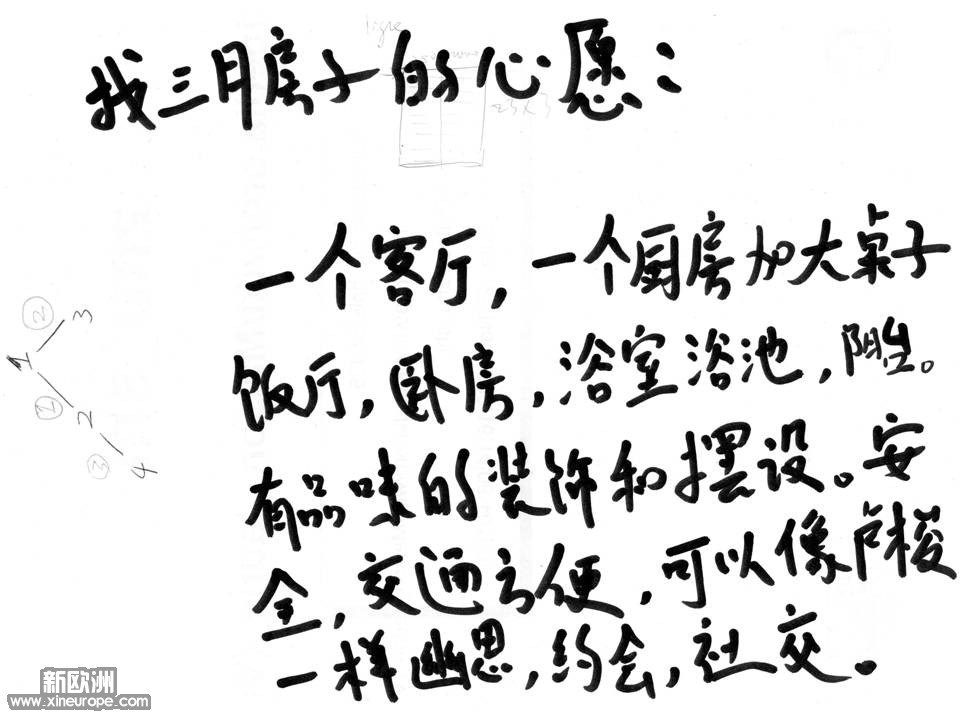 找三月房子的心愿：
一个客厅，一个厨房加大桌子
饭厅，卧房，浴室浴池，阳。
有品味的装饰和摆设。安
全，交通方便，可以像卢梭
一样幽思，约会，社交。
② 3
1
① 2
③ 4
新欧洲
www.xineurope.com